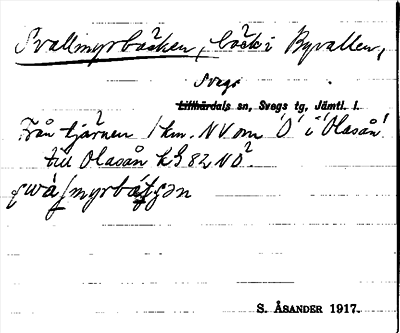 Svallmyrbäcken, bäck i Byvallen,
Svegs
Lillhärdals sn, Svegs tg, Jämtl. l.
Från tjärnen 1 km. NV om 'O' i 'Olasån'
till Olasån kG 82 NO².